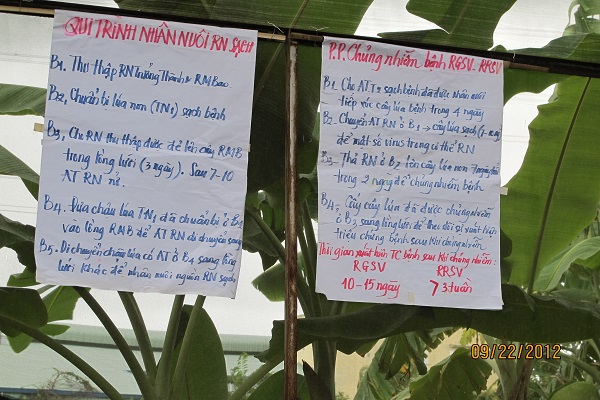 QUI TRÌNH NHÂN NUÔI RN SẠCH
B1. Thu thập RN trưởng thành & RMB
B2. Chuẩn bị lúa non (TN1) sạch bệnh
B3. Cho RN thu thập được đẻ lên cây RMB
trong lồng lưới (3 ngày). Sau 7-10
AT RN nở.
B4. Đưa chậu lúa TN1 đã chuẩn bị ở B2
vào lồng RMB để AT RN di chuyển sang
B5. Di chuyển chậu lúa có AT ở B4 sang lồng
lưới khác để nhân nuôi nguồn RN sạch
P.P. Chủng nhiễm bệnh RGSV - RRSV
B1. Cho AT sạch bệnh đã được nhân nuôi
tiếp xúc cây lúa bệnh trong 4 ngày
B2. Chuyển AT RN ở B1 → cây lúa sạch
để mật số virus trong cơ thể RN
B3. Thả RN ở B2 lên cây lúa non
trong 2 ngày để chủng nhiễm bệnh
B4. Cây lúa đã được chủng nhiễm
ở B3 sang lồng lưới để theo dõi sự xuất hiện
triệu chứng bệnh sau khi chủng nhiễm
Thời gian xuất hiện TC bệnh sau khi chủng nhiễm:
RGSV RRSV
10-15 ngày 7 3 tuần
09/22/2012